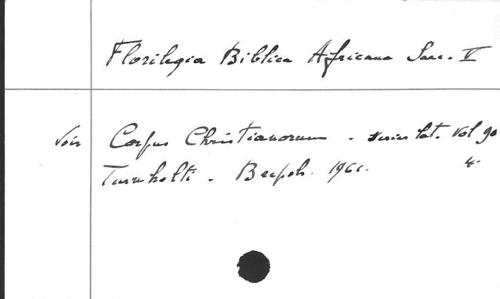 Florilegia Biblica Africana Saec. V
Voir Corpus Christianorum - series lat. Vol 90
Turnholti - Brepols. 1961.